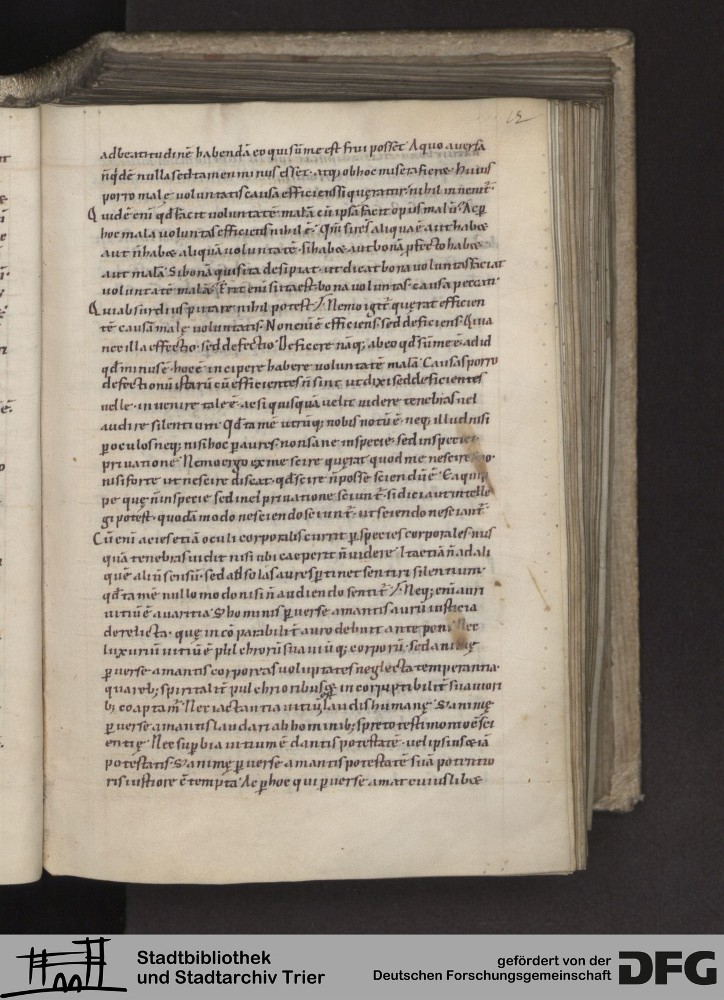 12
ad beatitudinē habendā eo qui sūme est frui possēt. A quo aversa
n̄ qdē nulla sed tamen minus esset. atq; ob hoc misera fieret. Huius
porro malę voluntatis causa efficiens si queratur. nihil invenit̄.
Quid ē eni qd facit voluntatē malā cū ipsa facit opus malū. Ac p̱
hoc mala voluntas efficiens nihil ē.
aut n̄ habet aliquā voluntatē. Si habet aut bonā p̱fecto habet
aut malā. Si bonā quis ita desipiat. ut dicat bona voluntas faciat
voluntatē malā. Erit eni si ita est. bona voluntas causa peccati.
Qui absurdius putare nihil potest. Nemo igit̄ querat efficien
tē causā malę voluntatis. Non eni ē efficiens. sed deficiens. Quia
nec illa effectio. sed defectio. Deficere nāq; ab eo qd sūme ē. ad id
qd minus ē. hoc ē incipere habere voluntatē malā. Causas porro
defectionū istarū cū efficientes n̄ sint ut dixi sed deficientes
velle invenire tale ē. ac si quisquā velit videre tenebras vel
audire silentium. Qd tamē utrūq; nobis notū ē. neq; illud nisi
p̱ oculos neq; nisi hoc p̱ aures. non sane in specie. sed in speciei
privatione. Nemo ergo ex me scire querat quod me nescire scio.
nisi forte ut nescire discat. qd scire n̄ posse sciendū ē. Ea quip
pe quę n̄ in specie sed in ei privatione sciunt̄. si dici aut intelle
gi potest. quodā modo nesciendo sciunt̄. ut sciendo nesciant̄.
Cū eni acies etiā oculi corporalis currit p̱ species corporales. nus
quā tenebras vidit nisi ubi caeperit n̄ videre. Ita etiā n̄ ad ali
quē aliū sensū. sed ad solas aures p̱tinet sentiri silentium.
qd tamē nullo modo nisi n̄ audiendo sentit̄. Neq; eni auri
vitiū ē avaritia. S; hominis p̱verse amantis aurū iusticia
derelicta. que incōparabilit̄ auro debuit anteponi. Nec
luxuria vitiū ē pulchrorū suaviūq; corporū. sed animę
p̱verse amantis corporeas voluptates neglecta temperantia.
qua reb; spiritalit̄ pulchrioribusq; in corruptibilit̄ suaviori
b; coaptam̄. Nec iactantia vitiū laudis humanę. S; animę
p̱verse amantis laudari ab hominib; spreto testimonio csci
entię. Nec sup̱bia vitium ē dantis potestatē. vel ipsius etiā
potestatis. S; animę p̱verse amantis potestatē suā potentio
ris iustiore ctempta. Ac p̱ hoc qui p̱verse amat cuiuslibet
Stadtbibliothek
und Stadtarchiv Trier
gefördert von der
Deutschen Forschungsgemeinschaft
DFG